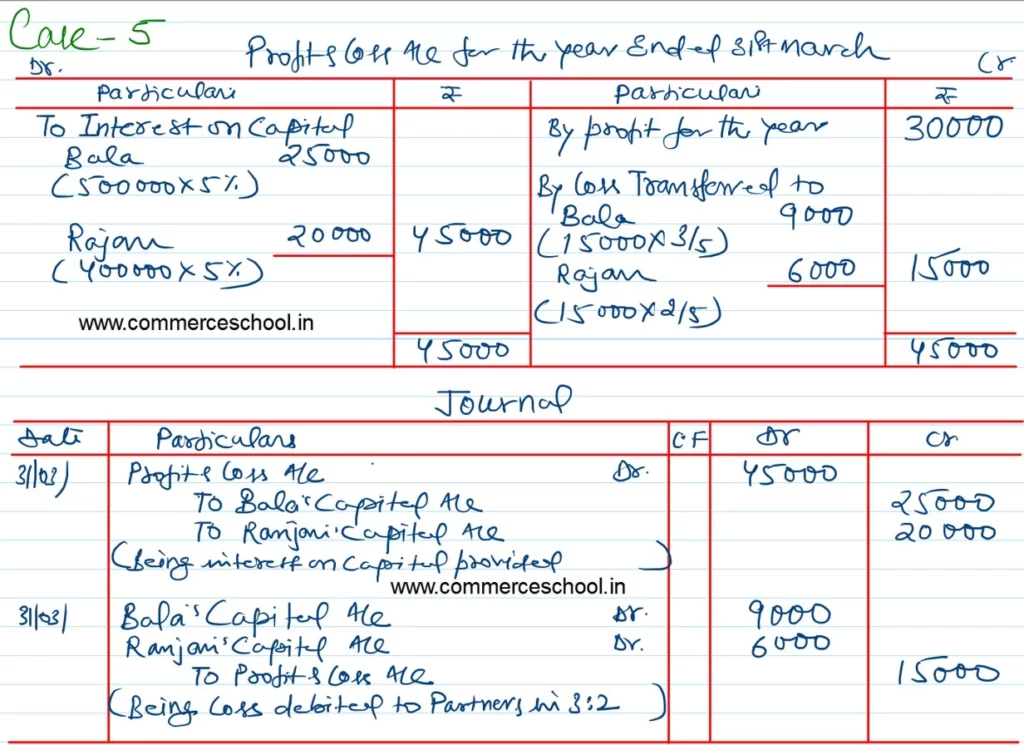 Case - 5
Profit & Loss A/c for the year Ended 31st March
Dr. Cr
Particulars ₹ Particulars ₹
To Interest on Capital By profit for the year 30000
Bala 25000
(500000 x 5%) By Loss Transferred to
Bala 9000
Rajan 20000 45000 (15000 x 3/5)
(400000 x 5%) Rajan 6000 15000
(15000 x 2/5)
www.commerceschool.in
45000 45000
Journal
Date Particulars CF Dr Cr
31/03) Profit & Loss A/c Dr. 45000
To Bala's Capital A/c 25000
To Ranjani's Capital A/c 20000
(Being interest on Capital provided)
www.commerceschool.in
31/03) Bala's Capital A/c Dr. 9000
Ranjani's Capital A/c Dr. 6000
To Profit & Loss A/c 15000
(Being Loss debited to Partners in 3:2)